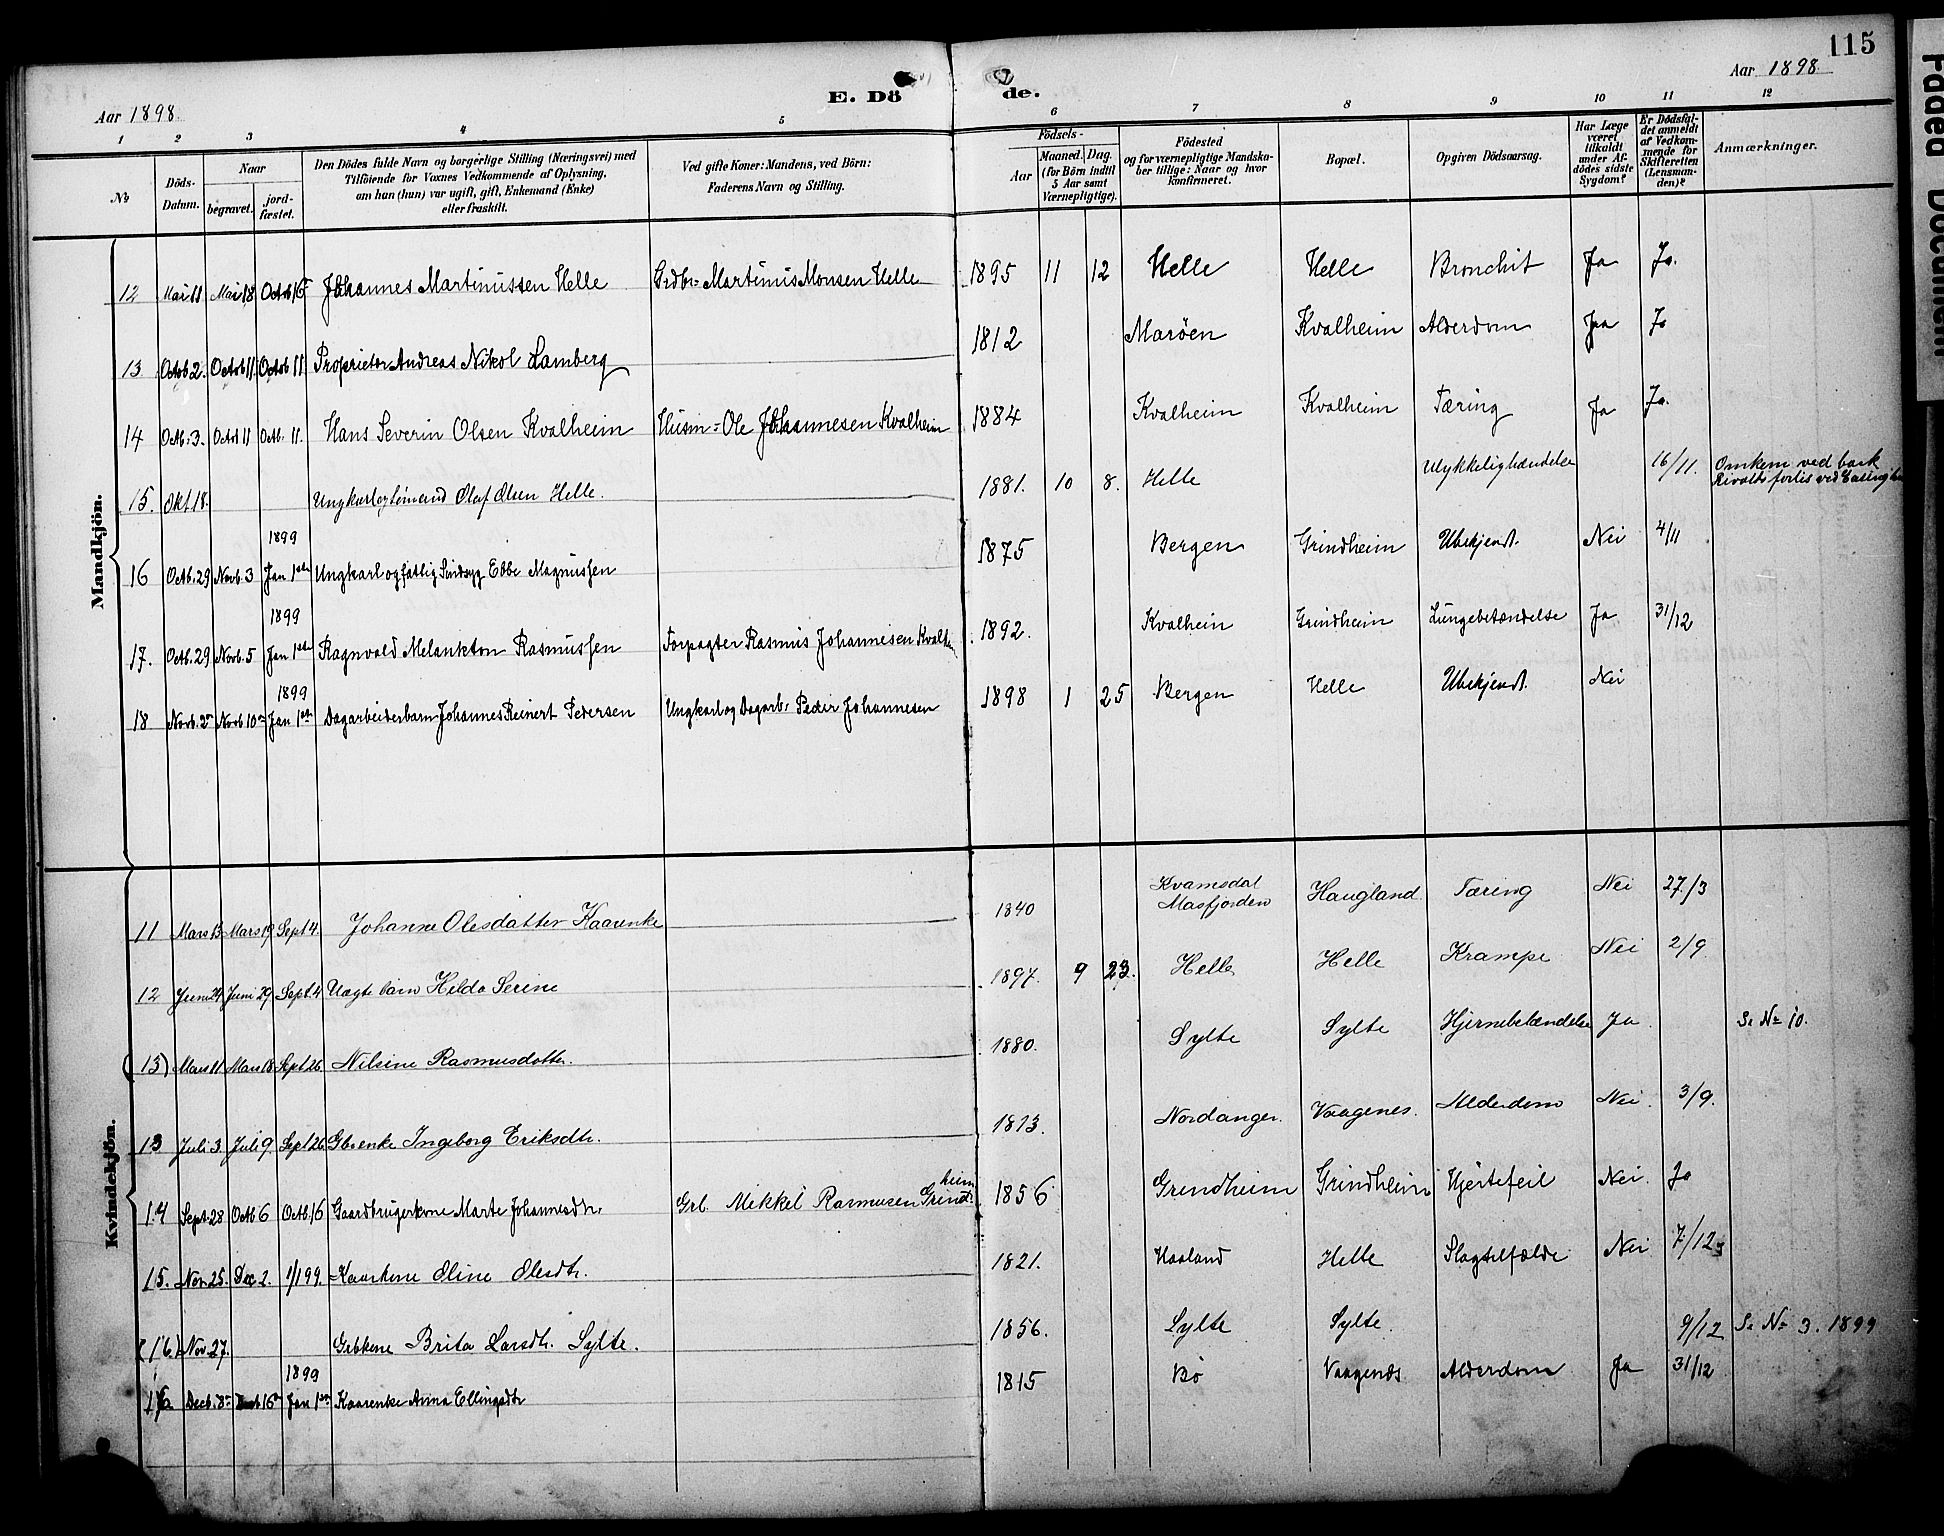 115
Aar 1898.
E. Dö de.
Aar 1898.
1 2 3 4 5 6 7 8 9 10 11 12
No
Döds-Datum.
Naar
begravet.
jord-fæstet.
Den Dödes fulde Navn og borgerlige Stilling (Næringsvei) med
Tilföiende for Voxnes Vedkommende af Oplysning,
om han (hun) var ugift, gift, Enkemand (Enke)
eller fraskilt.
Ved gifte Koner: Mandens, ved Börn:
Faderens Navn og Stilling.
Födsels-
Aar
Maaned. Dag.
(for Börn indtil
5 Aar samt
Værnepligtige).
Födested
og for værnepligtige Mandska-
ber tillige: Naar og hvor
konfirmeret.
Bopæl.
Opgiven Dödsaarsag.
Har Læge
været
tilkaldt
under Af-
dödes sidste
Sygdom?
Er Dödsfal-
det anmeldt
af Vedkom-
mende for
Skifteretten
(Lensman-
den)?
Anmærkninger.
Mandkjön.
12 Mai 11 Mai 18 Octob 16 Johannes Martinussen Helle Grdbr= Martinus Monsen Helle 1895 11 12 Helle Helle Bronchit Ja Ja.
13 Octob 2. Octob 11. Octob 11 Proprietær Andreas Nikol Lamberg 1812 Maröen Kvalheim Alderdom Jaa Ja
14 Octb. 3. Octob 11 Octb. 11. Hans Severin Olsen Kvalheim Husm= Ole Johannesen Kvalheim 1884 Kvalheim Kvalheim Tæring Ja Ja.
15. Okt 18. Ungkarl og sömand Olaf Olsen Helle. 1881. 10 8. Helle Ulykkelighændelse 16/11. Omkom ved bark
forlis ved
1899
16 Octb. 29 Novb. 3 Jan 1ste Ungkarl og fattig Sindsyg Ebbe Magnussen 1875 Bergen Grindheim Ubekjendt. Nei 4/11
1899
17. Octb. 29 Novb. 5 Jan 1ste Ragnvald Melankton Rasmussen Forpagter Rasmus Johannesen Kvalh 1892. Kvalheim Grindheim Lungebetændelse Ja 31/12
1899
18 Novb. 3 Novb. 10 Jan 1ste Dagarbeiderbarn Johannes Reinert Pedersen Ungkarl og Dagarb. Peder Johannesen 1898 1 25 Bergen Helle Ubekjendt. Nei
Kvindekjön.
11 Mars 13 Mars 19 Sept 4. Johanne Olesdatter Kaarenke 1840 Kvamsdal
Masfjorden Haugland. Tæring Nei 27/3
12 Juni 24 Juni 29 Sept. 4 Uægte barn Hilda Serine 1897. 9 23. Helle Helle Krampe Nei 2/9.
(13) Mars 11 Mars 18 Sept 26. Nilsine Rasmusdatter. 1880. Sylte Sylte Hjernebetændelse Ja Se No 10.
13 Juli 3 Juli 9. Sept 26 Gbrenke Ingeborg Eriksdtr. 1813. Nordanger Vaagenes. Alderdom Nei 3/9.
14 Sept. 28 Octb 6 Octb. 16 Gaardbrugerkone Marte Johannesdtr. Grb. Mikkel Rasmusen Grind=
heim 1856 Grindheim Grindheim Hjertefeil Nei. Ja
15. Nov. 25. Dec 2. 1/1 99. Kaarkone Oline Olesdtr. 1821. Haaland Helle Slagtilfælde Nei 7/12
(16.) Nov. 27. Grbkone Brita Larsdtr. Sylte. 1856. Sylte Sylte. 9/12 Se No 3. 1899
1899
16 Decb. 8 Decb 16 Jan 1ste Kaarenke Anna Ellingsdtr 1815 Bö Vaagenes Alderdom Ja 31/12
Faded Document